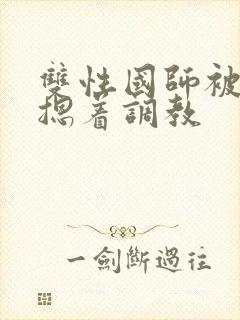 雙性國師被
摁着調教
一劍斷過往